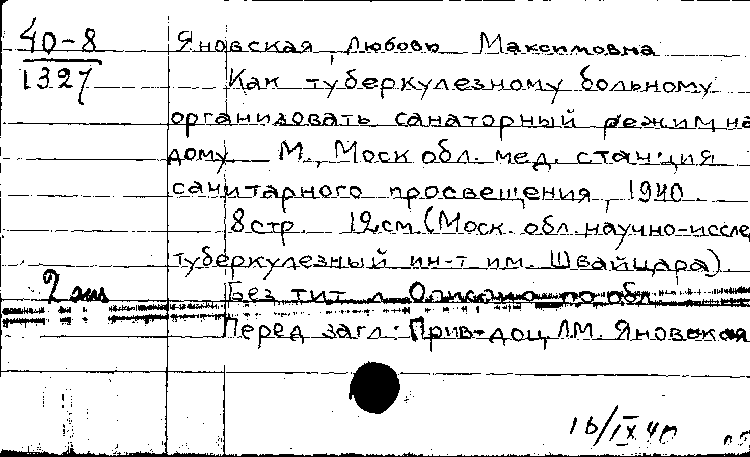 40-8
1327
Яновская, Любовь Максимовна
Как туберкулезному больному
организовать санаторный режим на
дому. М., Моск обл. мед. станция
санитарного просвещения, 1940.
8 стр. 12 см. (Моск. обл. научно-иссле
туберкулезный ин-т им. Швайцара).
2 экз
Без тит. л. Описано по обл.
Перед загл.: Прив-доц. Л.М. Яновская
16/IX 40